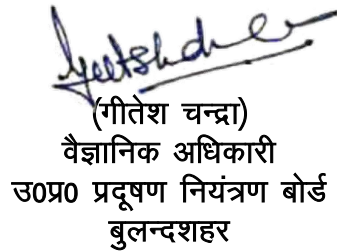 (गीतेश चन्द्रा)
वैज्ञानिक अधिकारी
उ0प्र0 प्रदूषण नियंत्रण बोर्ड
बुलन्दशहर